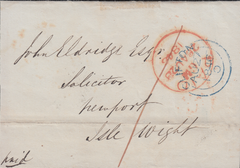 John Eldridge Esqr
Solicitor
Newport
Isle Wight
paid